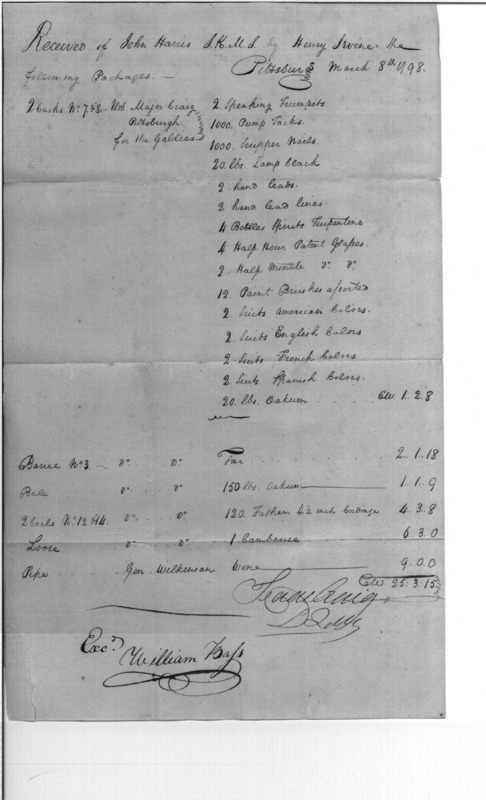 Received of John Harris S.K.M.S by Henry Irvine the
following Packages. — Pittsburg March 8th 1798.
2 Casks No. 7 & 8 - Major Craig 2. Speaking Trumpets
Pittsburgh 1000. Pump Tacks.
for the Gallies 1000. Scupper Nails.
20 lbs. Lamp black
2. hand leads.
2 hand lead lines.
4 Bottles Spirits Turpentine
4 Half Hour Patent Glasses.
2. Half Minute Do. Do.
12. Paint Brushes assorted
2. Suits American Colors.
2. Suits English Colors
2. Suits French Colors
2. Suits Spanish Colors.
20 lbs. Oakum . . Cw. 1. 2. 8
No. 3 — Do. Do. Tar . . . 2.. 1.. 18
Bale Do. Do. 150 lbs. Oakum — 1.. 1.. 9
2 Coils No. 12 & 4. Do. Do. 120. Fathom 4½ inch Cordage 4. 3. 8
Loose Do. Do. 1 Cambouse 6. 3. 0
Pipe . . Gen. Wilkinson Wine — 9. 0. 0
Cw 25. 3. 15
Isaac Craig
D.Q.M.
Excd.
William